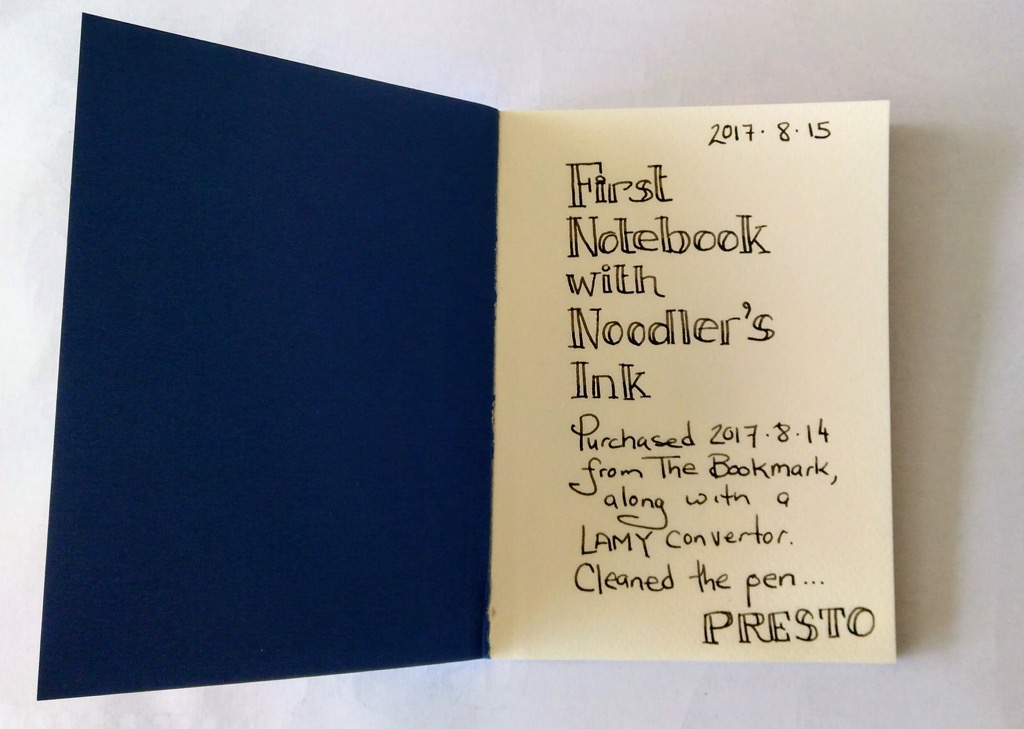 2017·8·15
First
Notebook
with
Noodler's
Ink
Purchased 2017·8·14
from The Bookmark,
along with a
LAMY convertor.
Cleaned the pen...
PRESTO